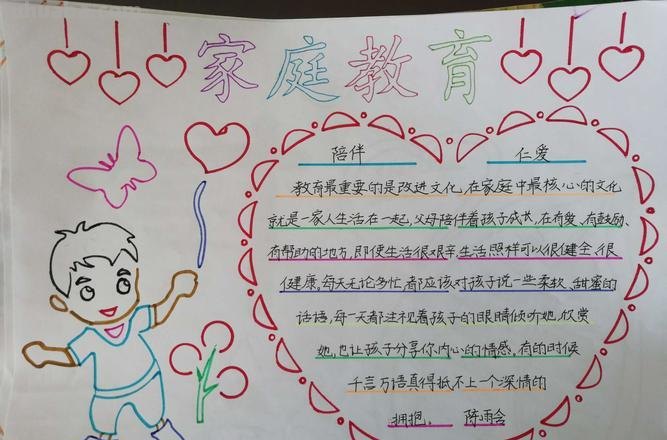 家庭教育
陪伴 仁爱
教育最重要的是改进文化,在家庭中最核心的文化
就是一家人生活在一起,父母陪伴着孩子成长,在有爱、有鼓励、
有帮助的地方,即使生活很艰辛,生活照样可以很健全、很
健康,每天无论多忙,都应该对孩子说一些柔软、甜蜜的
话语,每一天都注视着孩子的眼睛倾听她,欣赏
她,也让孩子分享你内心的情感。有的时候
千言万语真得抵不上一个深情的
拥抱。 陈雨含